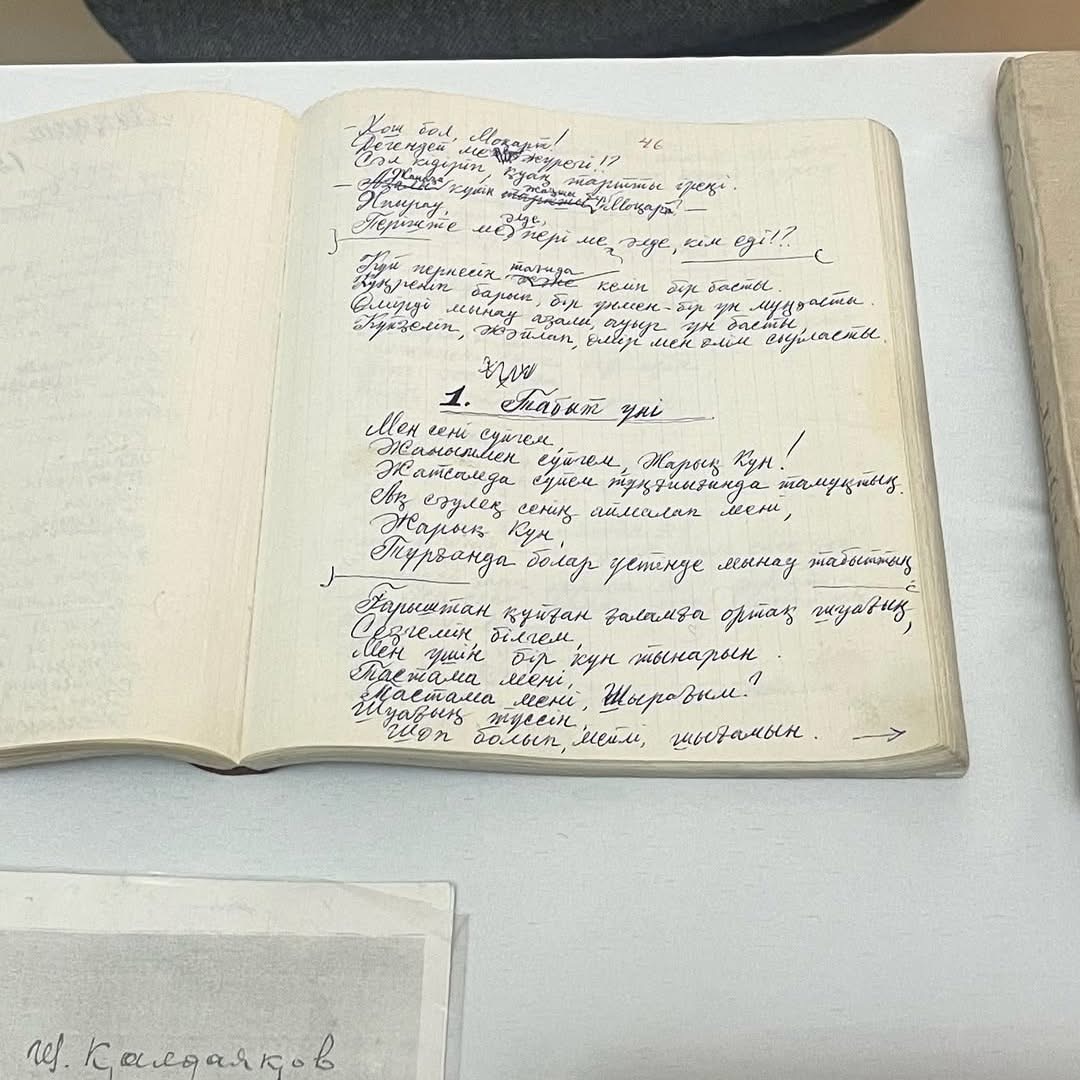 46
– Қош бол, Моцарт!
Дегендей ме жүрегі!?
Сәл кідіріп, қуаң тартты реңі.
– Жаназа күйін жаздың ба, Моцарт? –
Япырау,
Періште ме, әлде, пері ме, әлде, кім еді!?
Күй пернесін тағы да келіп бір басты.
Күңреніп барып, бір үнмен - бір үн мұңдасты.
Өмірді мынау азалы, ауыр үн басты,
Күйзеліп, жәйлап, өмір мен өлім сырласты.
1. Табыт үні
Мен сені сүйгем,
Жаныммен сүйгем, Жарық Күн!
Жатсам да сүйем тұңғиығында тамұқтың.
Ақ сәулең сенің аймалап мені,
Жарық Күн,
Тұрғанда болар үстінде мынау табыттың.
Ғарыштан құйған ғаламға ортақ шуағың,
Сезгемін, білгем,
Мен үшін бір күн тынарын.
Тастама мені,
Тастама мені, Шырағым!
Шуағың түссін,
Шөп болып, мейлі, шығамын. →
Ш. Қалдаяқов